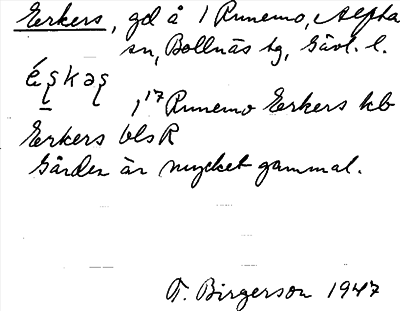 Erkers, gd å 1 Runemo, Alfta
sn, Bollnäs tg, Gävl. l.
éʂkəʂ
, 17 Runemo Erkers kb
Erkers bls R
Gården är mycket gammal.
T. Birgerson 1947